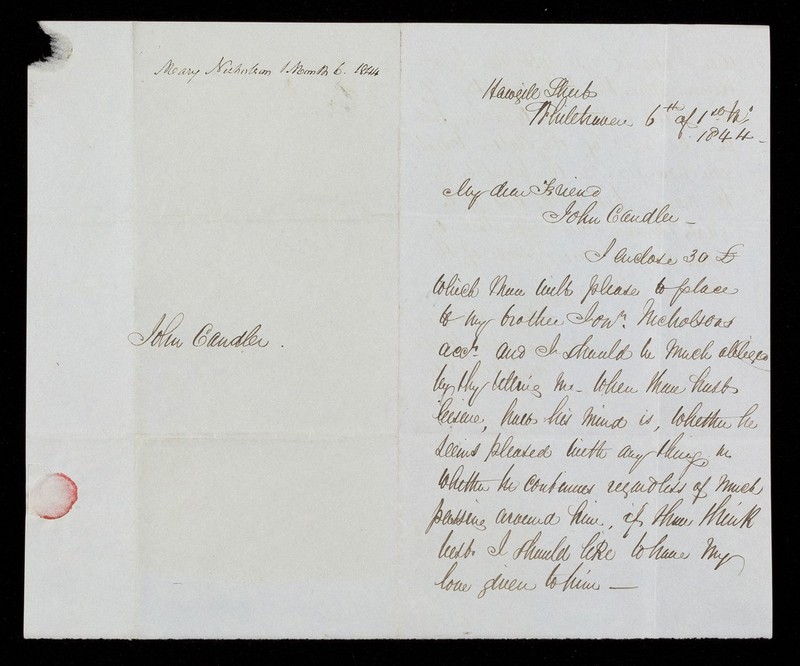 Mary Nicholson 1 Month 6. 1844
John Candler.
Hawgill Street
Whitehaven 6th of 1st Mo
1844 -
My dear Friend
John Candler -
I enclose 30 £
which thou wilt please to place
to my brother Jonn. Nicholsons
acct. and I should be much obliged
by thy telling me - when thou hast
leisure, how his mind is, whether he
seems pleased with any thing or
whether he continues regardless of much
passing around him, if thou think
best I should like to have my
love given to him —